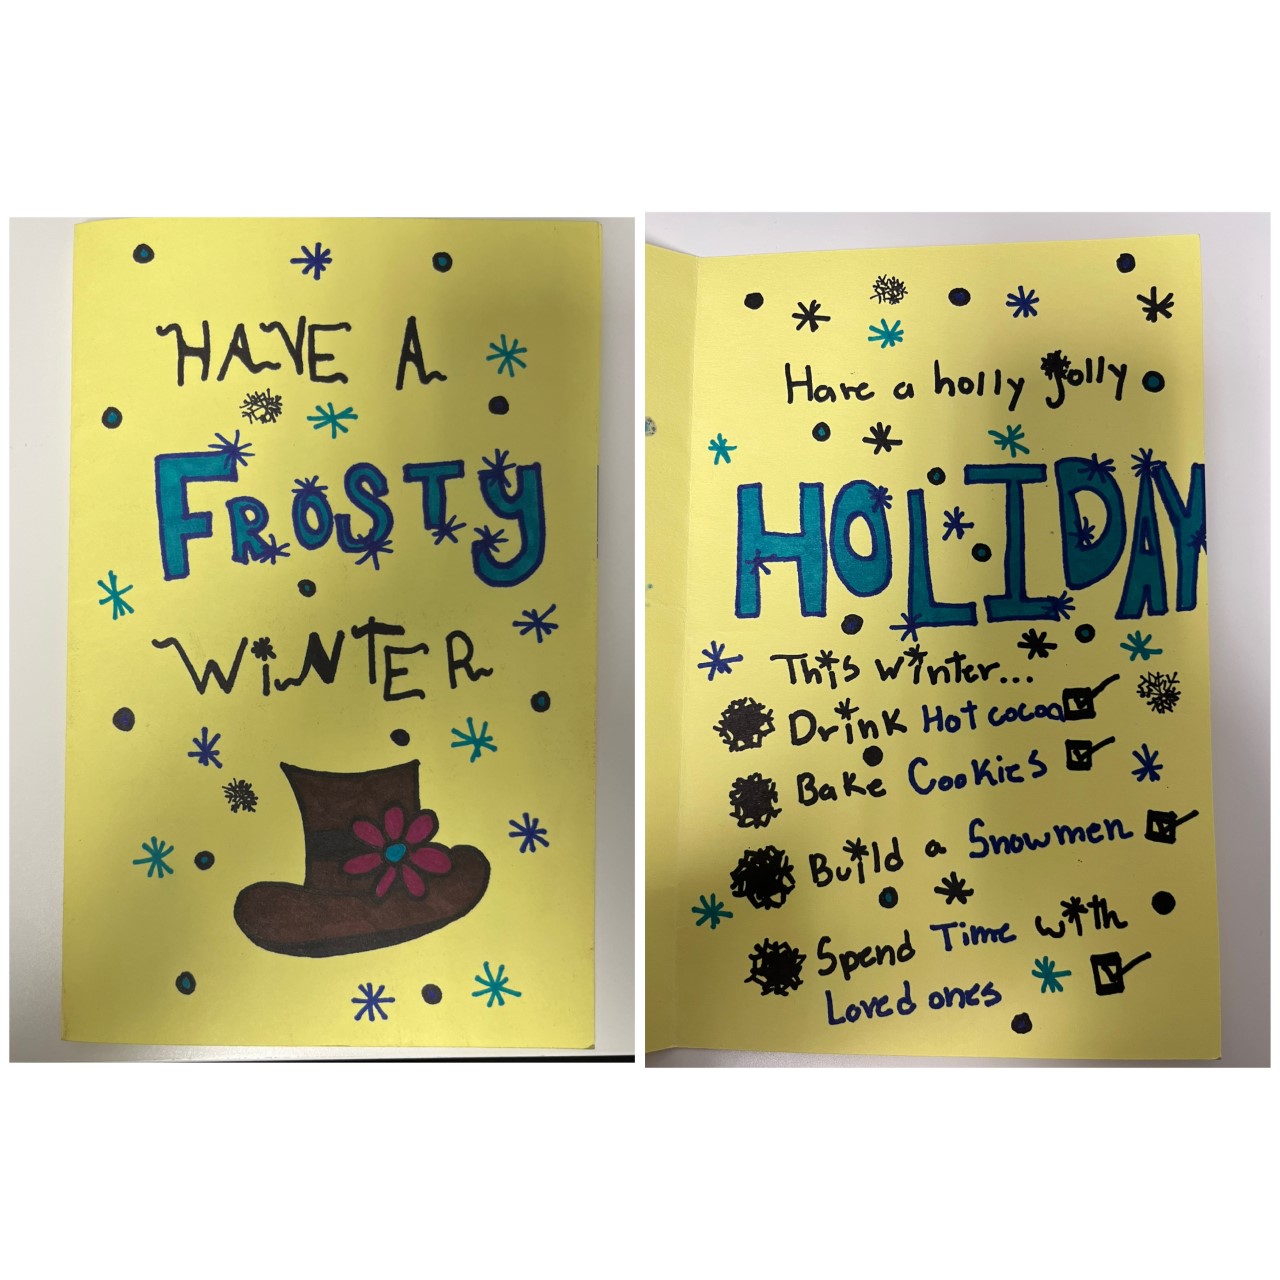 HAVE A
FROSTY
WiNTER
Have a holly jolly
HOLIDAY
This winter...
Drink Hot cocoa
Bake Cookies
Build a Snowmen
Spend Time with
Loved ones